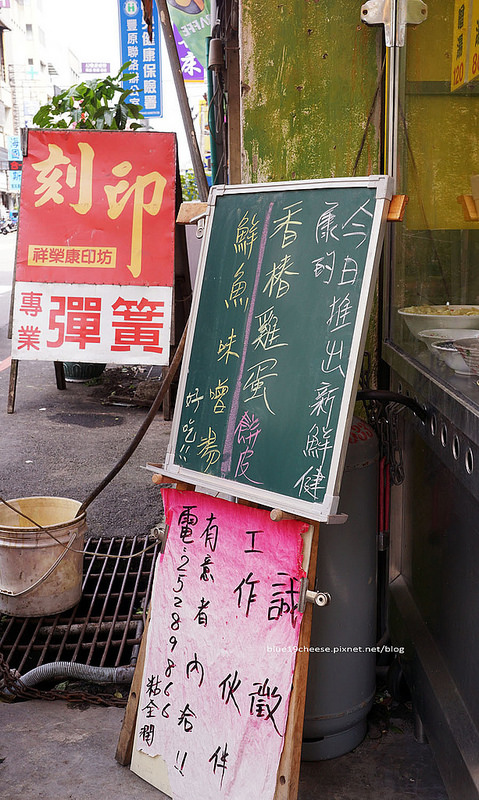 刻印
祥榮康印坊
專業 彈簧
今日推出新鮮健
康的
香椿雞蛋餅皮
鮮魚味噌湯
好吃!!
誠徵
工作伙伴
有意者內洽!!
電:25289866
豐原聯絡辦公室
康保險
blue19cheese.pixnet.net/blog